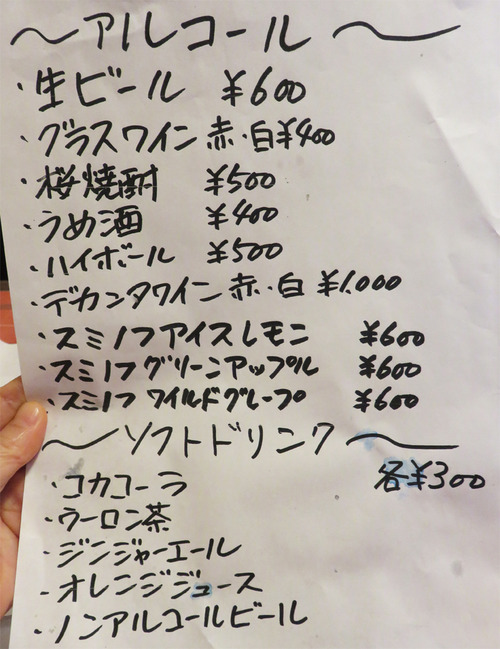 ～アルコール～
・生ビール ¥600
・グラスワイン 赤・白¥400
・桜焼酎 ¥500
・うめ酒 ¥400
・ハイボール ¥500
・デカンタワイン 赤・白 ¥1.000
・スミノフアイスレモニ ¥600
・スミノフグリーンアップル ¥600
・スミノフ ワイルドグレープ ¥600
～ソフトドリンク～
各¥300
・コカコーラ
・ウーロン茶
・ジンジャーエール
・オレンジジュース
・ノンアルコールビール